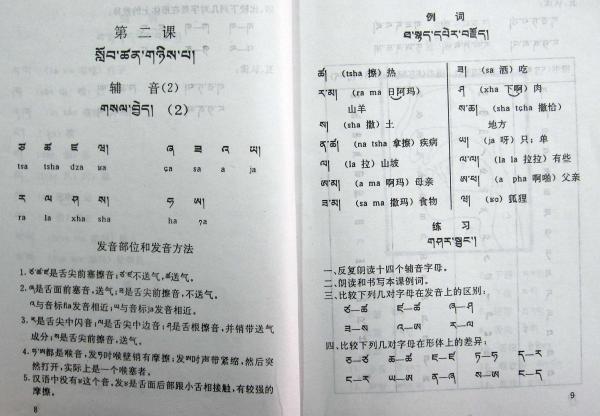 第二课
སློབ་ཚན་གཉིས་པ།
辅 音(2)
གསལ་བྱེད། (2)
ཙ ཚ ཛ ཝ། ཞ ཟ འ ཡ།
tsa tsha dza wa ça sa a ja
ར ལ ཤ ས། ཧ ཨ།
ra la xha sha ha ʔa
发音部位和发音方法
1. ཙ་ཚ་ཛ是舌尖前塞擦音;ཙ་ཛ不送气,ཚ送气。
2. ཞ是舌面前塞音,送气;ཟ是舌尖前擦音,不送气。
འ与音标ɦa发音相近;ཡ与音标ja发音相近。
3. ར是舌尖中闪音;ལ是舌尖中边音;ཤ是舌根擦音,并稍带送气
成分;ས是舌尖前擦音,送气。
4. ཧ་ཨ都是喉音,发ཧ时喉壁稍有摩擦;发ཨ时声带紧缩,然后突
然打开,实际上是一个喉塞者。
5. 汉语中没有ʁ这个音,发ʁ是舌面后部跟小舌相接触,有较强的
摩擦。
8
例 词
ཐ་སྙད་དཔེར་བརྗོད།
ཚ། (tsha 擦)热
ར་མ། (ra ma 日阿玛)
山羊
ས། (sha 撒)土
ན་ཚ། (na tsha 拿擦)疾病
ལ། (la 拉)山坡
ཨ་མ། (a ma 啊玛)母亲
ཟ་མ། (sa ma 撒玛)食物
ཟ། (sa 洒)吃
ཤ། (xha 下啊)肉
ས་ཆ། (sha tɕha 撒恰)
地方
ཡ། (ja 呀)只;单
ལ་ལ། (la la 拉拉)有些
ཨ་ཕ། (a pha 啊啪)父亲
ཝ། (ʁo)狐狸
练 习
གཤར་སྦྱང་།
一、反复朗读十四个辅音字母。
二、朗读和书写本课例词。
三、比较下列几对字母在发音上的区别:
ཙ—ཛ ཚ—ཛ ཞ—ཤ
ཟ—ས འ—ཨ ར—ལ
四、比较下列几对字母在形体上的差异:
ཅ—ཙ ཆ—ཚ ཇ—ཛ ཏ—ཧ ད—ར
9